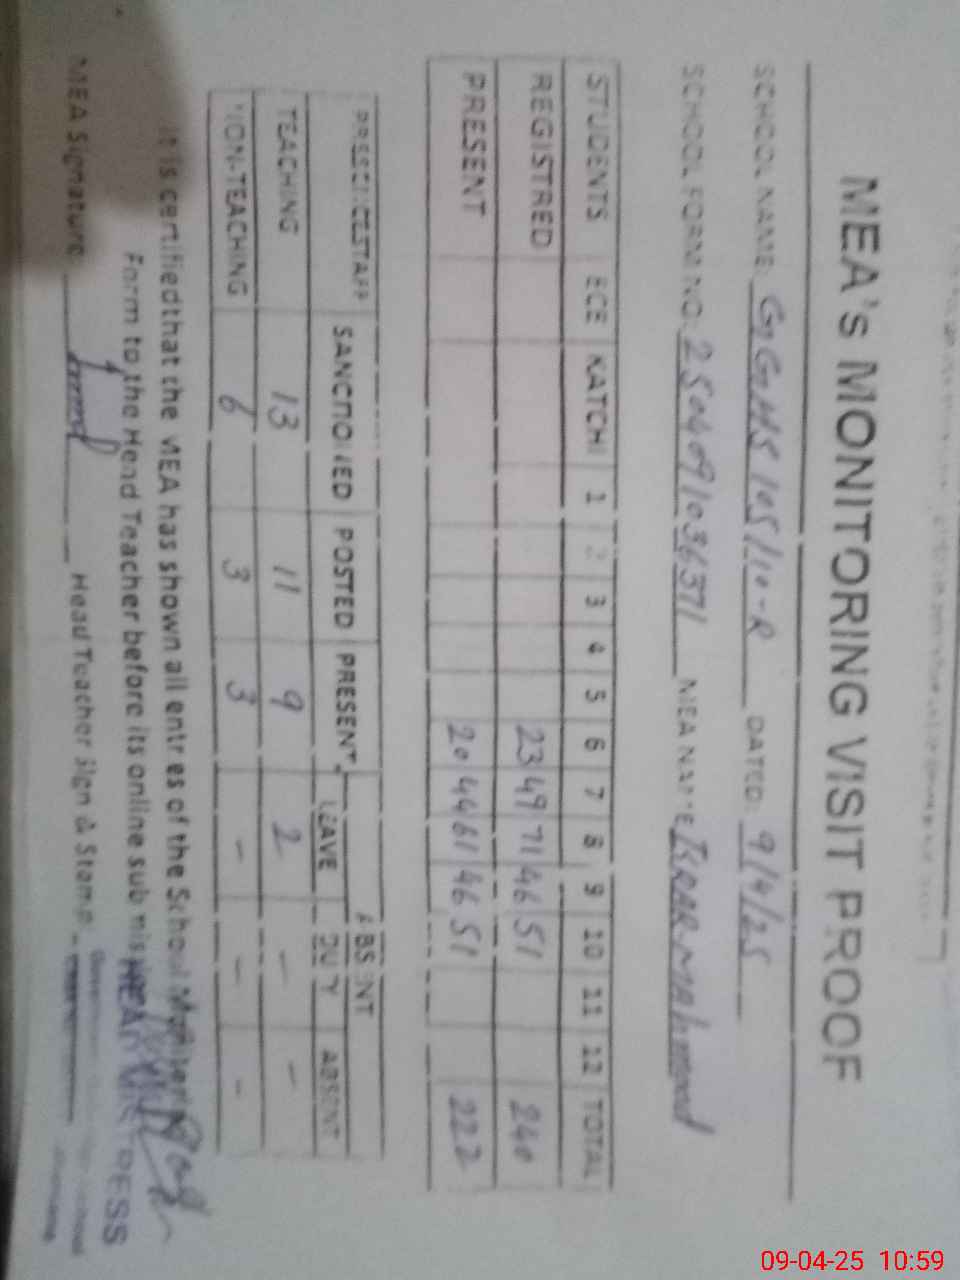 MEA's MONITORING VISIT PROOF
SCHOOL NAME: GGHS 105/10-R DATED: 9/4/25
SCHOOL FORM NO: MEA NAME Mahmood
STUDENTS ECE KATCHI 1 2 3 4 5 6 7 8 9 10 11 12 TOTAL
REGISTRED 23 49 71 46 51 240
PRESENT 20 44 61 46 51 222
PRESENCE STAFF SANCTIONED POSTED PRESENT ABSENT
LEAVE DUTY ABSENT
TEACHING 13 11 9 2 - -
NON-TEACHING 6 3 3 - - -
It is certified that the MEA has shown all entries of the School
Form to the Head Teacher before its online submis
HEAD MISTRESS
MEA Signature: Head Teacher Sign & Stamp
09-04-25 10:59